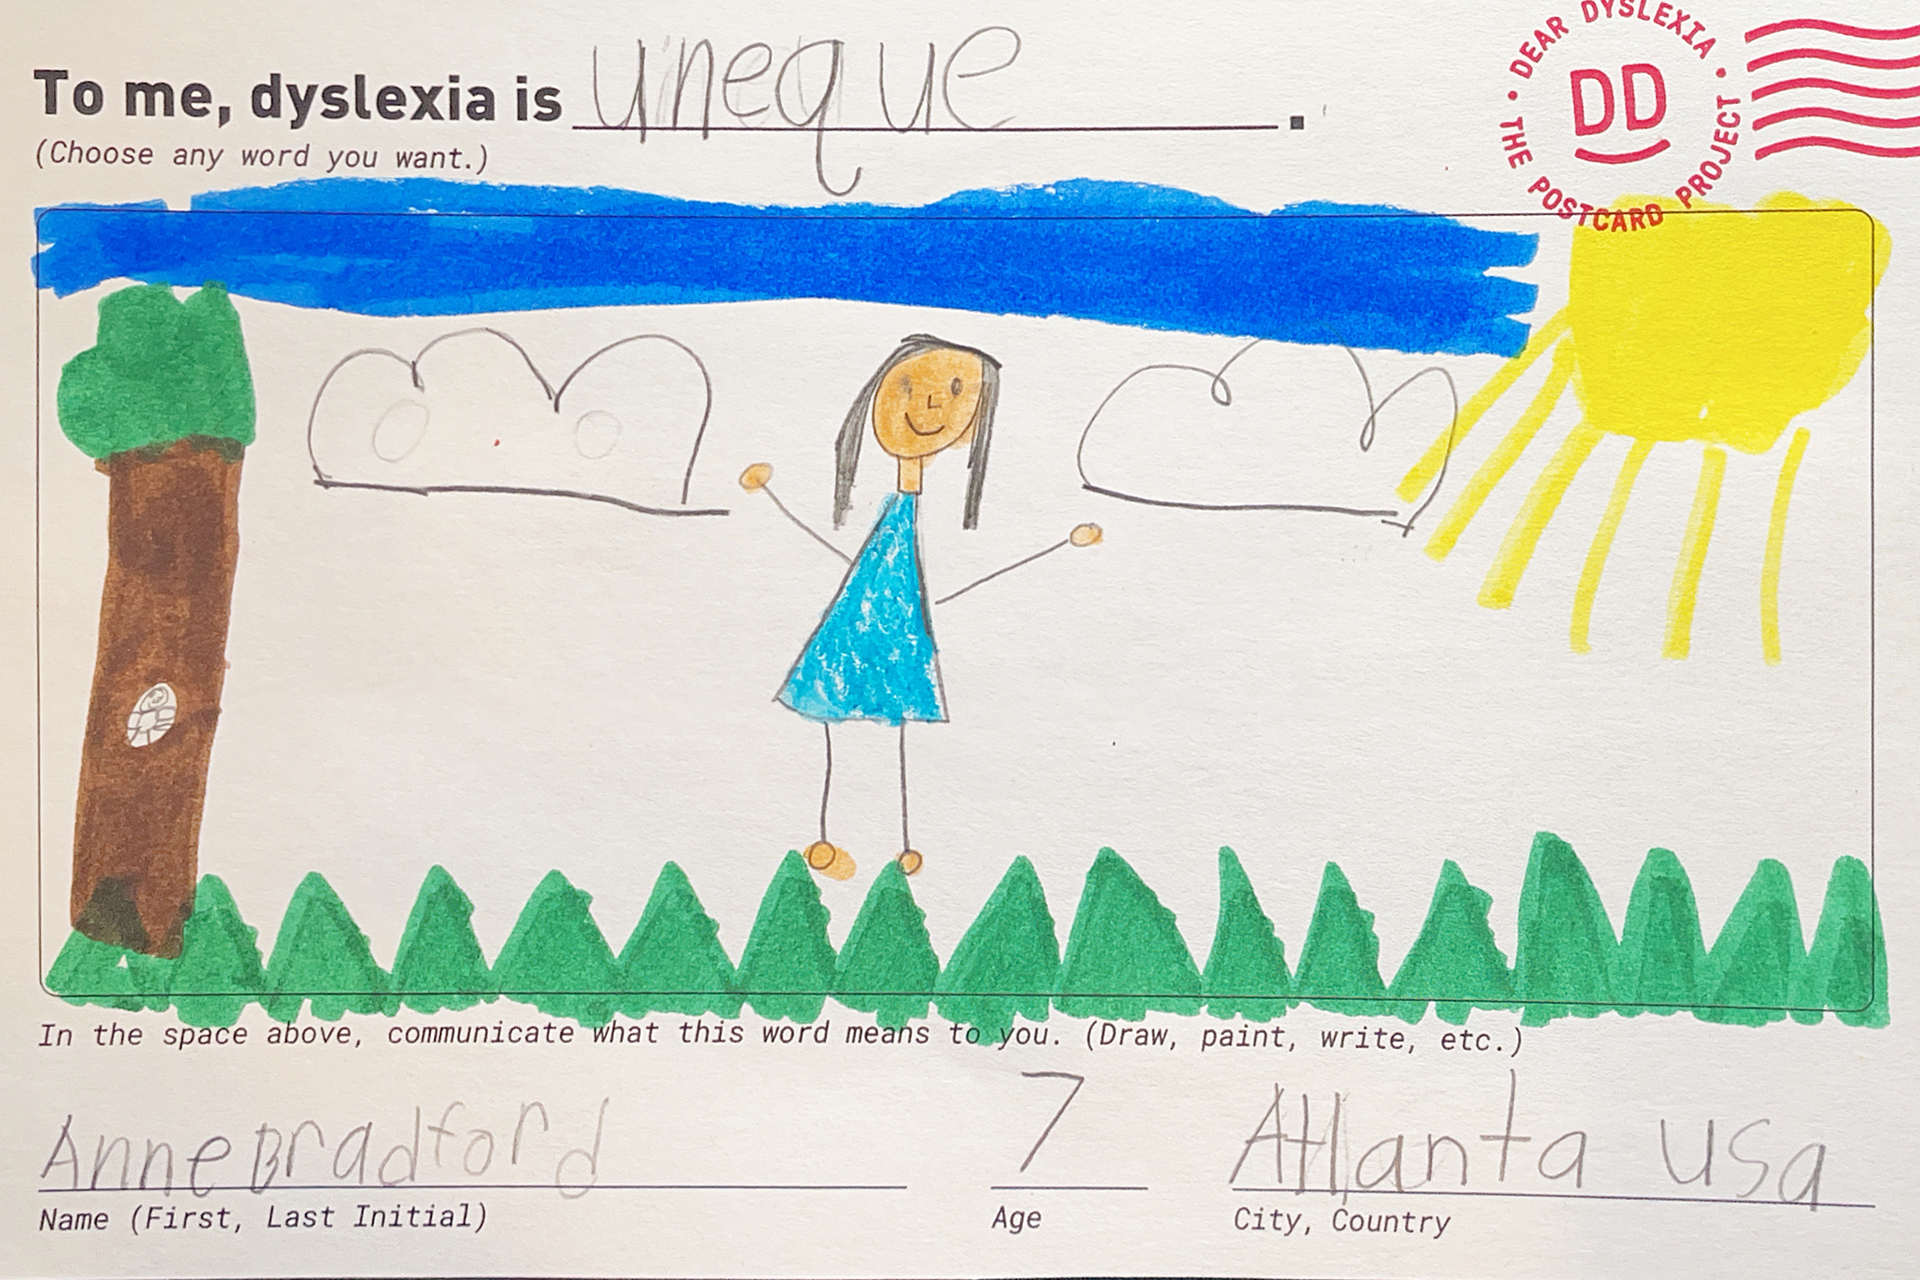 To me, dyslexia is uneque.
(Choose any word you want.)
• DEAR DYSLEXIA • THE POSTCARD PROJECT
DD
In the space above, communicate what this word means to you. (Draw, paint, write, etc.)
Anne Bradford 7 Atlanta usa
Name (First, Last Initial) Age City, Country